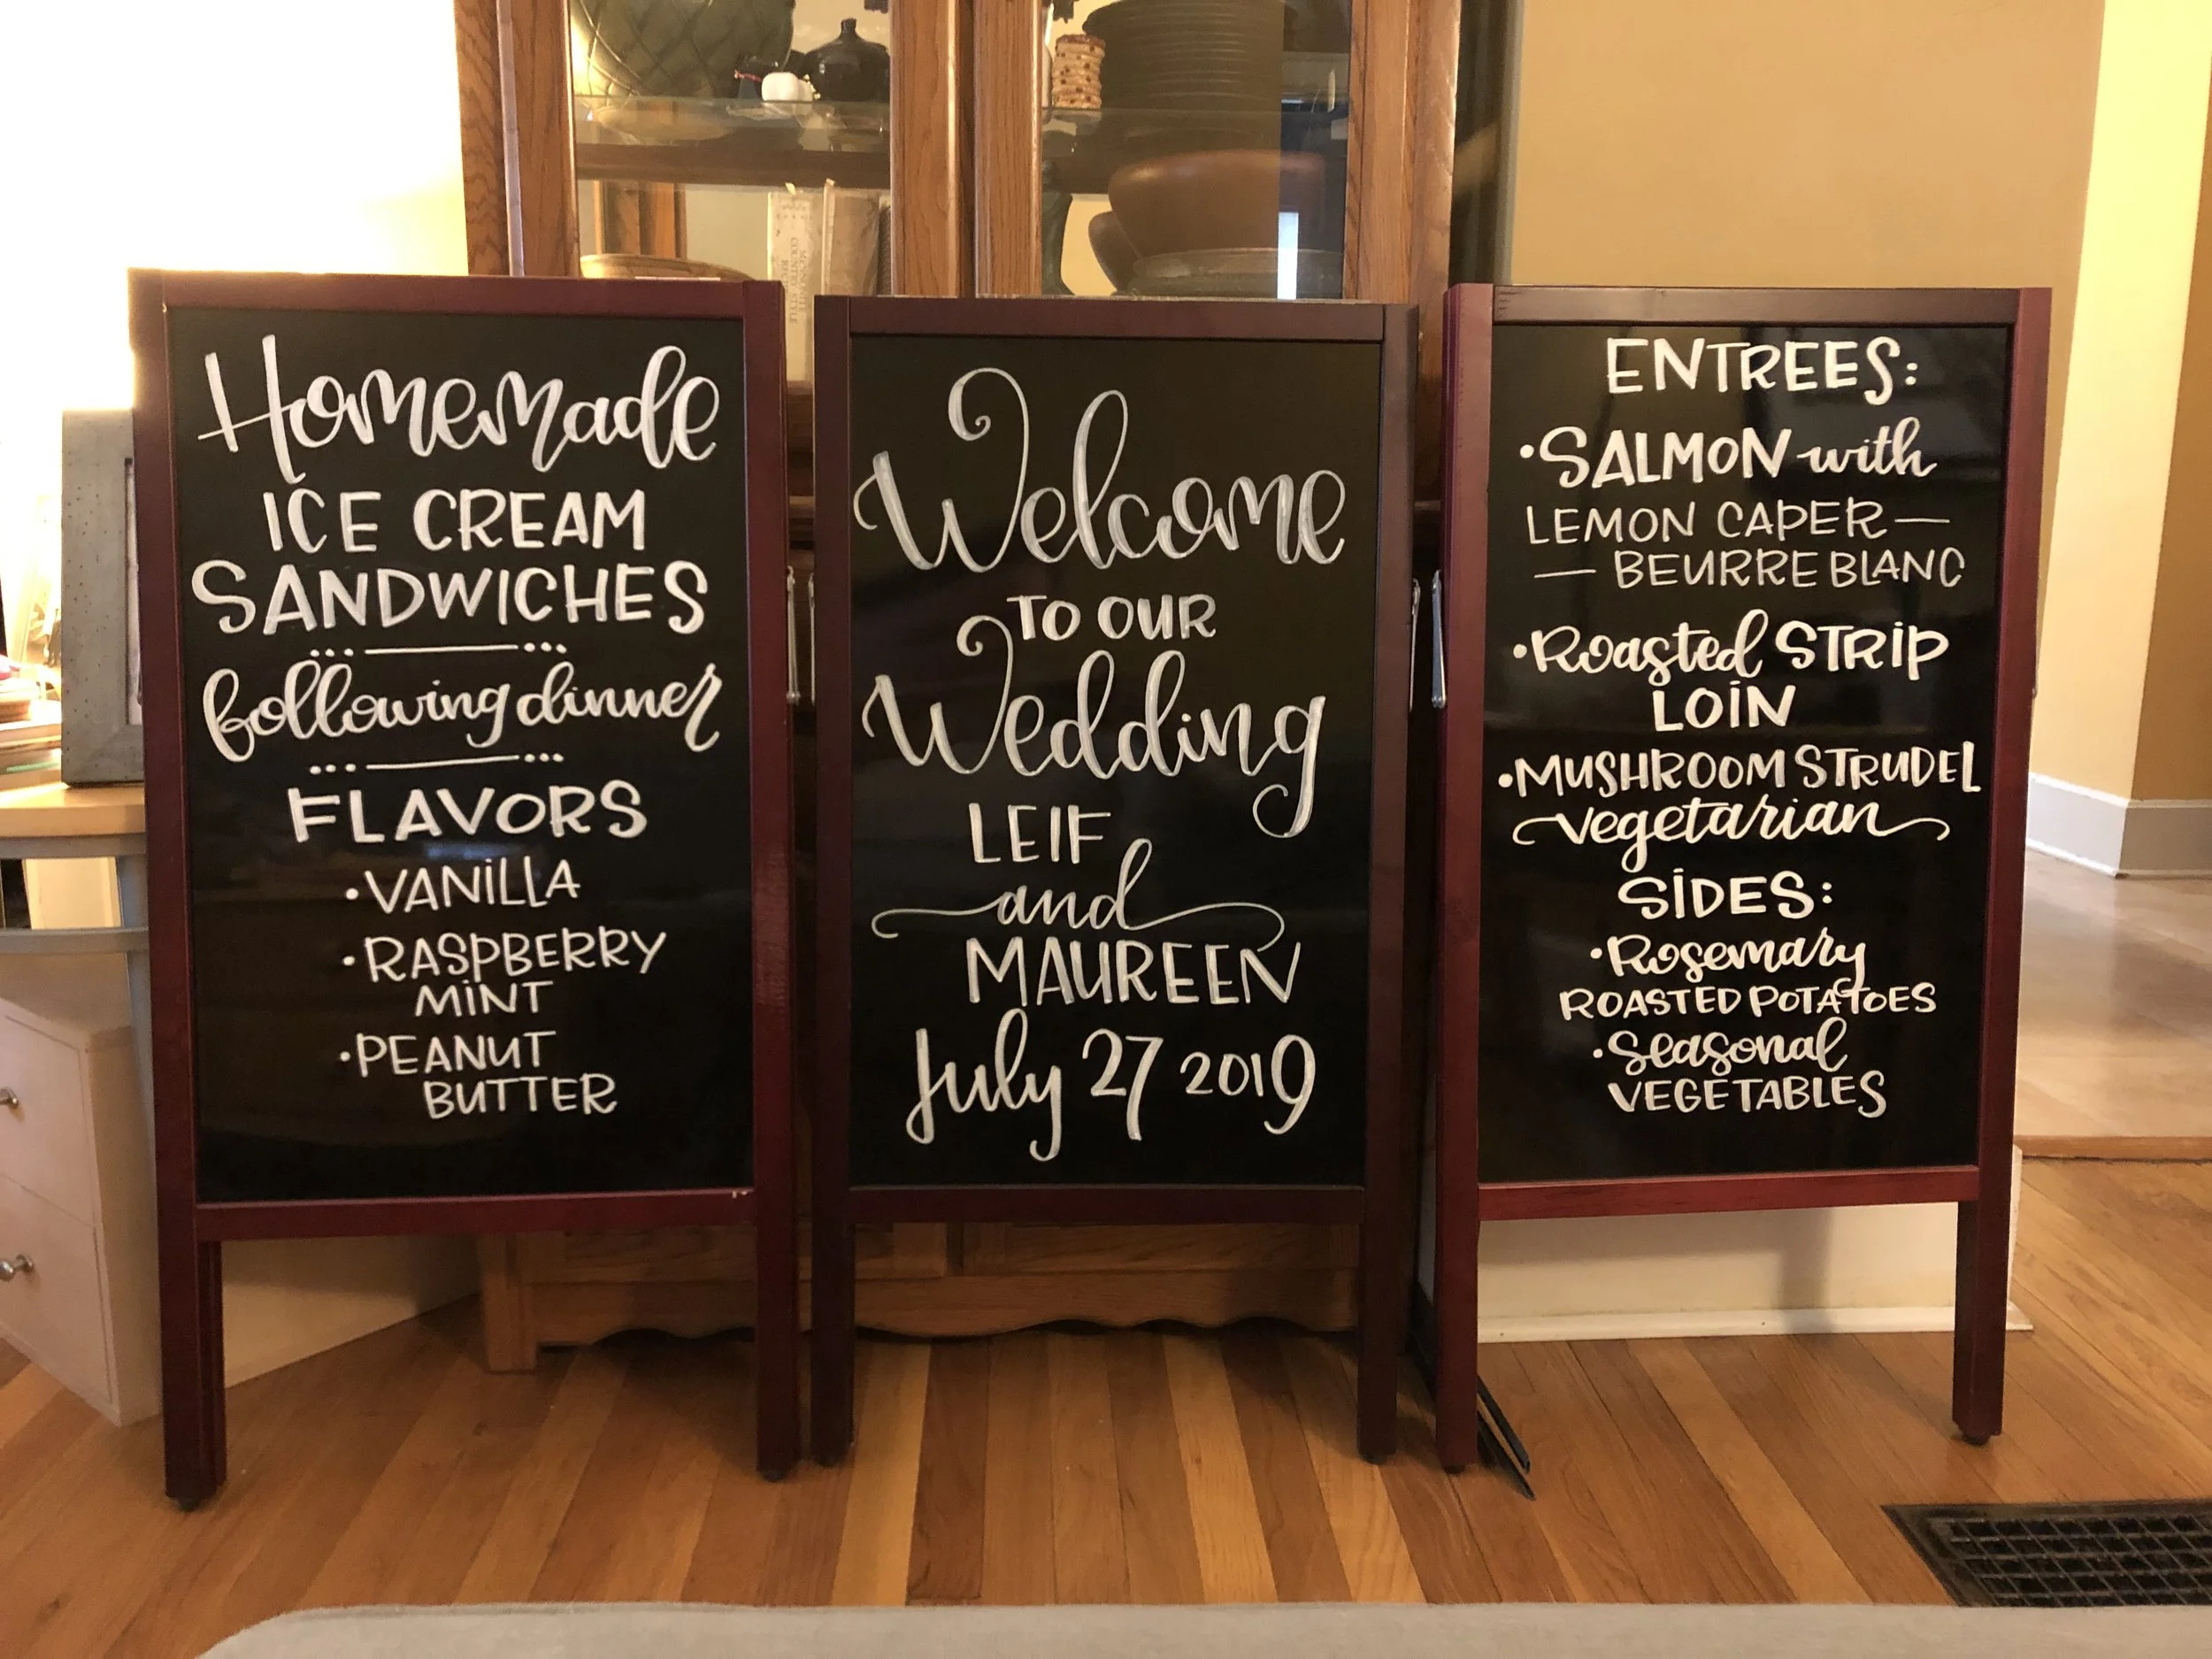 Homemade
ICE CREAM
SANDWICHES
following dinner
FLAVORS
•VANILLA
•RASPBERRY
MINT
•PEANUT
BUTTER
Welcome
TO OUR
Wedding
LEIF
and
MAUREEN
July 27 2019
ENTREES:
•SALMON with
LEMON CAPER—
—BEURRE BLANC
•Roasted STRIP
LOIN
•MUSHROOM STRUDEL
vegetarian
SIDES:
•Rosemary
ROASTED POTATOES
•Seasonal
VEGETABLES